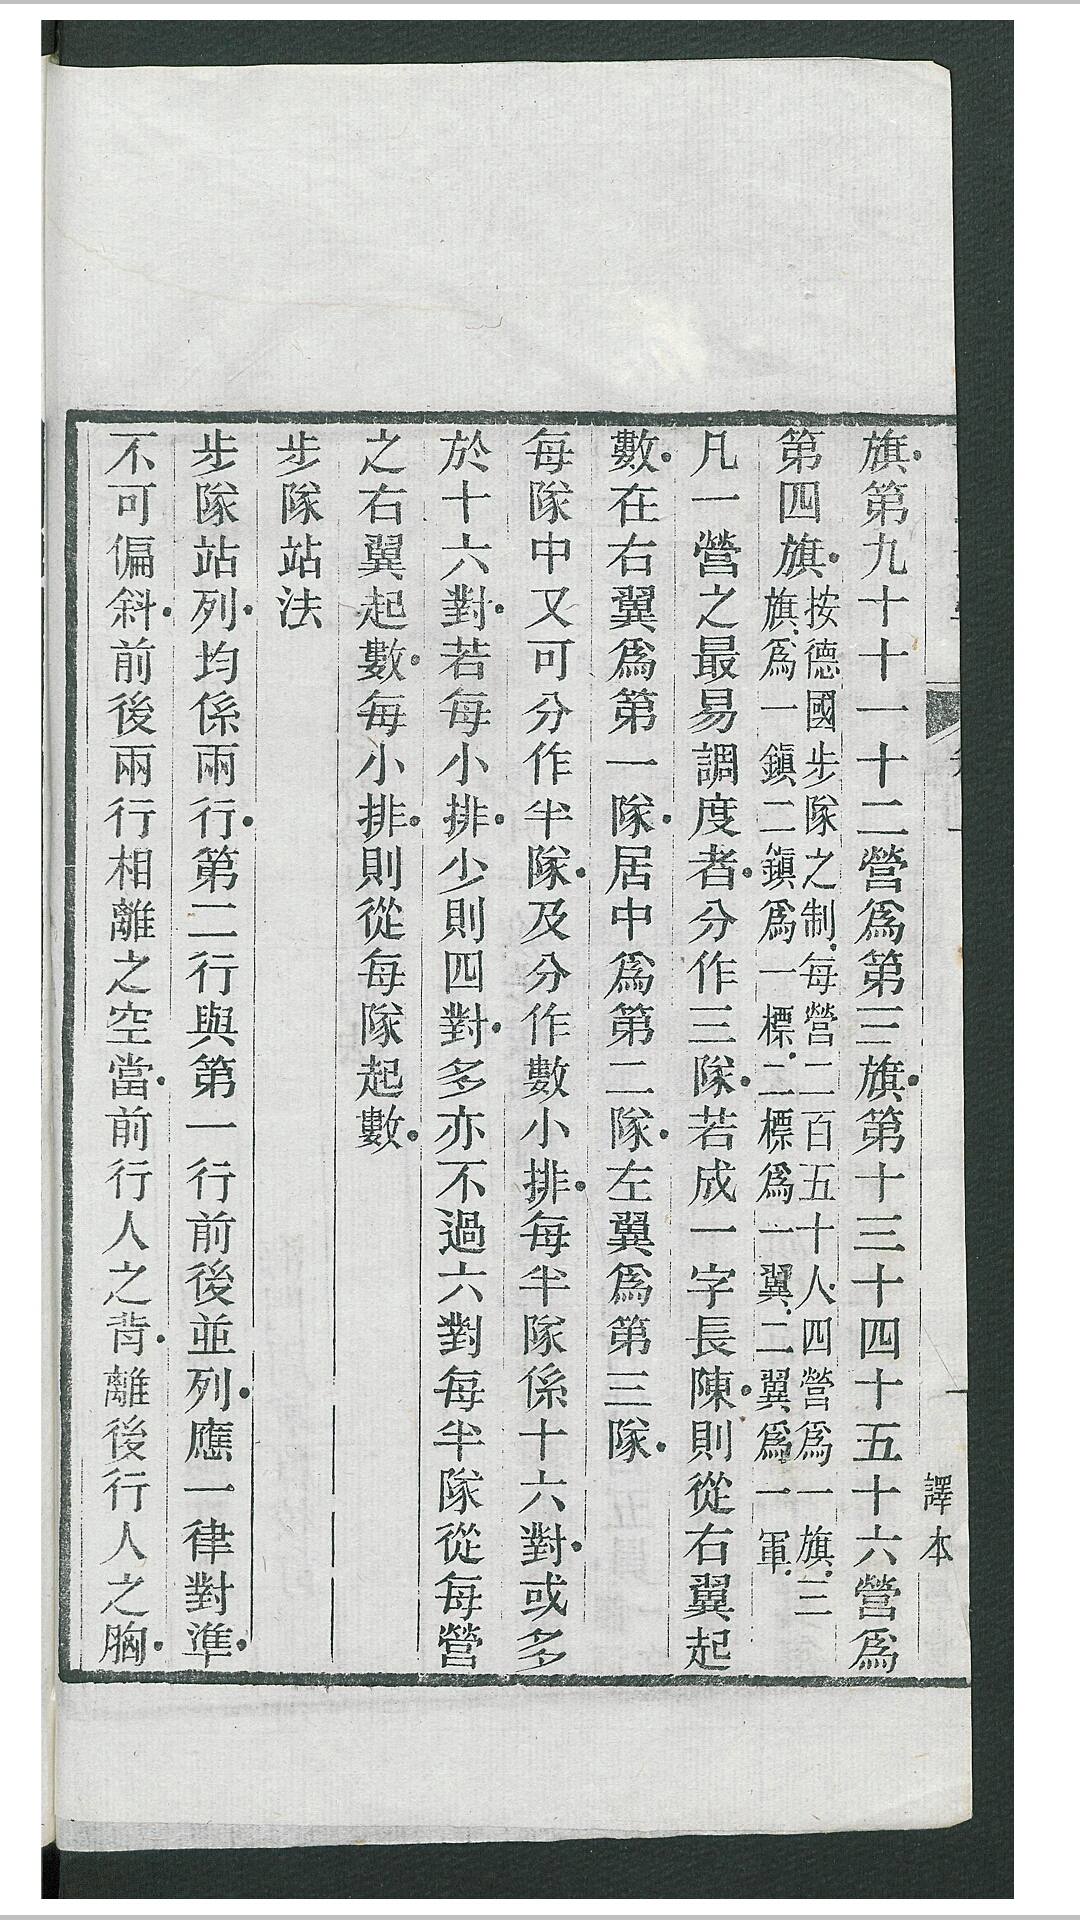 譯本
旗。第九十十一十二營爲第三旗。第十三十四十五十六營爲
第四旗。按德國步隊之制、每營二百五十人、四營爲一旗、三
旗、爲一鎭二鎭爲一標、二標爲一翼、二翼爲一軍、
凡一營之最易調度者。分作三隊。若成一字長陳。則從右翼起
數。在右翼爲第一隊。居中爲第二隊。左翼爲第三隊。
每隊中又可分作半隊。及分作數小排。每半隊係十六對。或多
於十六對。若每小排。少則四對。多亦不過六對每半隊從每營
之右翼起數。每小排。則從每隊起數。
步隊站法
步隊站列。均係兩行。第二行與第一行前後並列。應一律對準。
不可偏斜。前後兩行相離之空當。前行人之背。離後行人之胸。